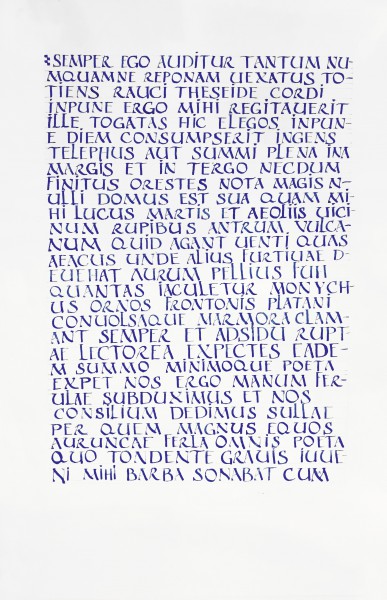 SEMPER EGO AUDITUR TANTUM NU-
MQUAMNE REPONAM UEXATUS TO-
TIENS RAUCI THESEIDE CORDI
INPUNE ERGO MIHI REGITAUERIT
ILLE TOGATAS HIC ELEGOS INPUN-
E DIEM CONSUMPSERIT INGENS
TELEPHUS AUT SUMMI PLENA INA
MARGIS ET IN TERGO NECDUM
FINITUS ORESTES NOTA MAGIS N-
ULLI DOMUS EST SUA QUAM MI-
HI LUCUS MARTIS ET AEOLIIS UICI-
NUM RUPIBUS ANTRUM VULCA-
NUM QUID AGANT UENTI QUAS
AEACUS UNDE ALIUS FURTIUAE D-
EUEHAT AURUM PELLIUS FUH
QUANTAS IACULETUR MONYCH-
US ORNOS FRONTONIS PLATANI
CONUOLSAQUE MARMORA CLAM-
ANT SEMPER ET ADSIDU RUPT-
AE LECTOREA EXPECTES EADE-
M SUMMO MINIMOQUE POETA
EXPET NOS ERGO MANUM FER-
ULAE SUBDUXIMUS ET NOS
CONSILIUM DEDIMUS SULLAE
PER QUEM MAGNUS EQUOS
AURUNCAE FERLA OMNIS POETA
QUO TONDENTE GRAUIS IUUE-
NI MIHI BARBA SONABAT CUM